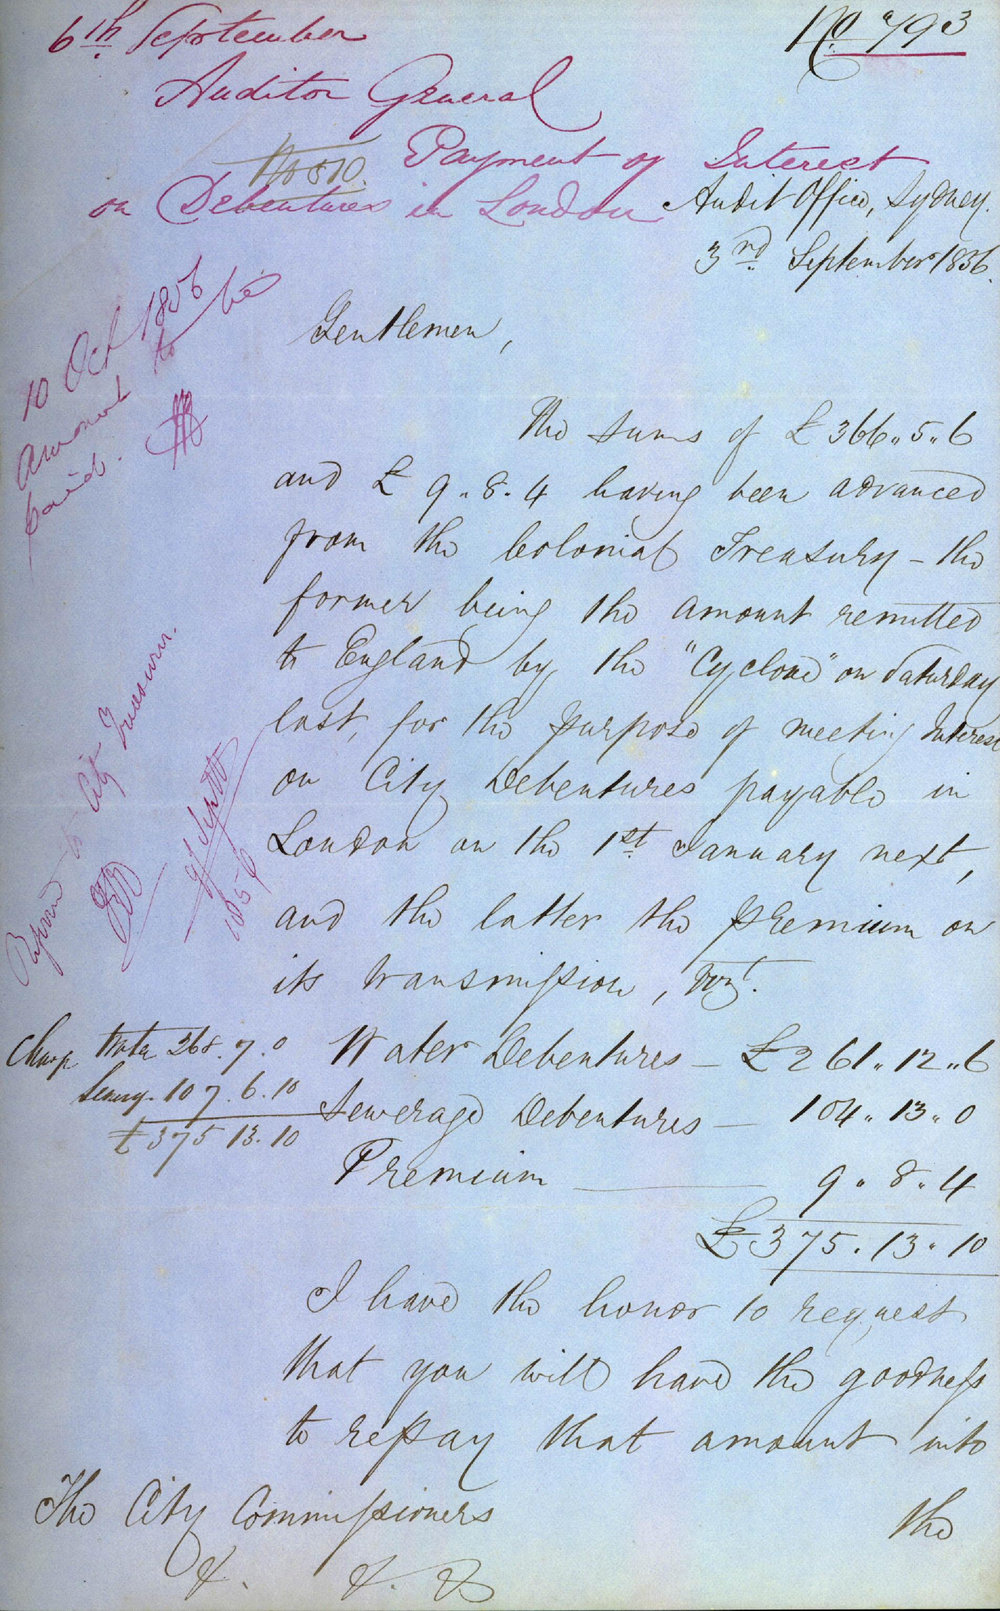 6th September
No. 793
Auditor General
No 810. Payment of Interest
on Debentures in London
Audit Office, Sydney.
3rd September 1856.
10 Oct 1856
Amount to be
paid.
Gentlemen,
The sums of £366.5.6
and £9.8.4 having been advanced
from the Colonial Treasury - the
former being the amount remitted
to England by the "Cyclone" on Saturday
last, for the purpose of meeting Interest
on City Debentures payable in
London on the 1st January next,
and the latter the premium on
its transmission, vizt.
to City Treasurer.
9 Sept
1856
Charge Water 268.7.0
Sewerg. 107.6.10
£375.13.10
Water Debentures - £261.12.6
Sewerage Debentures - 104.13.0
Premium - 9.8.4
£375.13.10
I have the honor to request
that you will have the goodness
to repay that amount into
The City Commissioners
&. &. &.
the